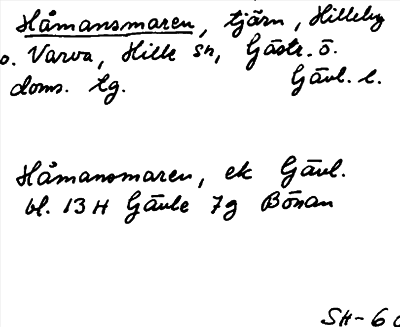 Håmansmaren, tjärn, Hilleby
o. Varva, Hille sn, Gästr. ö.
doms. tg. Gävl. l.
Håmansmaren, ek Gävl.
bl. 13 H Gävle 7g Bönan
SH-6